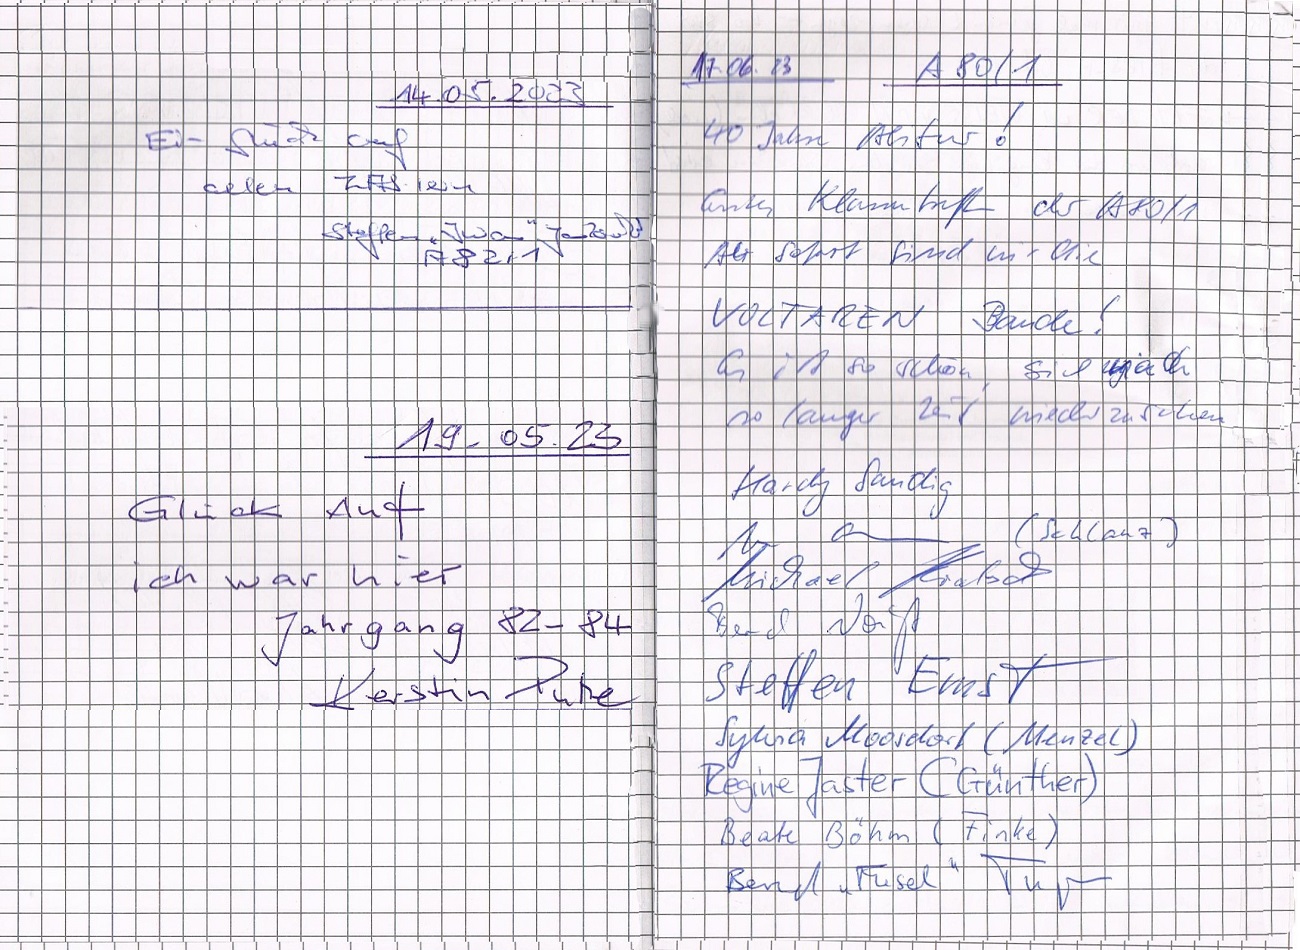 14.05.2023
Ein Glück auf
allen
Steffen „Iwan“
A82/1
19.05.23
Glück Auf
ich war hier
Jahrgang 82-84
Kerstin
17.06.23 A 80/1
40 Jahre Abitur!
Klassentreff der A80/1
Ab sofort sind wir die
VOLTAREN Bande!
Es ist so schön, sich nach
so langer Zeit wiederzusehen
Hardy Sandig
(Schlanz)
Michael
Bernd Voigt
Steffen Ernst
Sylvia Moosdorf (Menzel)
Regine Jaster (Günther)
Beate Böhm (Finke)
Bernd „Fusel“